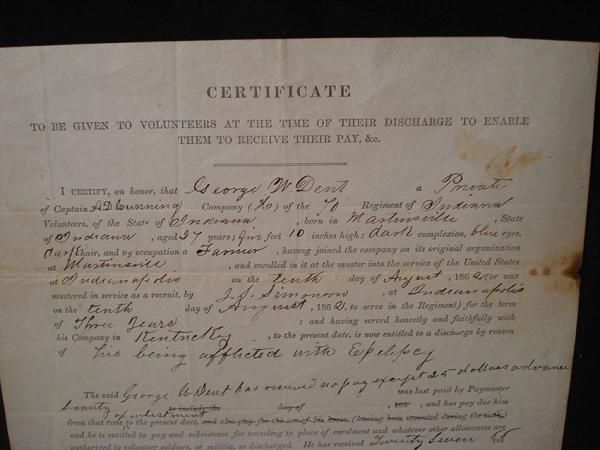 CERTIFICATE
TO BE GIVEN TO VOLUNTEERS AT THE TIME OF THEIR DISCHARGE TO ENABLE
THEM TO RECEIVE THEIR PAY, &c.
I CERTIFY, on honor, that George W. Dent a Private
of Captain A D Cunning Company (K) of the 70 Regiment of Indiana
Volunteers, of the State of Indiana, born in Martinsville, State
of Indiana, aged 37 years; five feet 10 inches high; dark complexion, blue eyes,
dark hair, and by occupation a Farmer, having joined the company on its original organization
at Martinsville, and enrolled in it at the muster into the service of the United States
at Indianapolis on the tenth day of August, 1862, (or was
mustered in service as a recruit, by J. S. Simonson, at Indianapolis
on the tenth day of August, 1862, to serve in the Regiment) for the term
of Three Years; and having served honestly and faithfully with
his Company in Kentucky, to the present date, is now entitled to a discharge by reason
of his being afflicted with Epilepsy
The said George W Dent has received no pay except 25 dollars advance
bounty to include the day of 186 was last paid by Paymaster, and has pay due him
of enlistment
from that time to the present date, and also pay for the use of his horse, (having been mounted during the time)
and he is entitled to pay and subsistence for traveling to place of enrolment and whatever other allowances are
authorized to volunteer soldiers, or militia, so discharged. He has received Twenty Seven